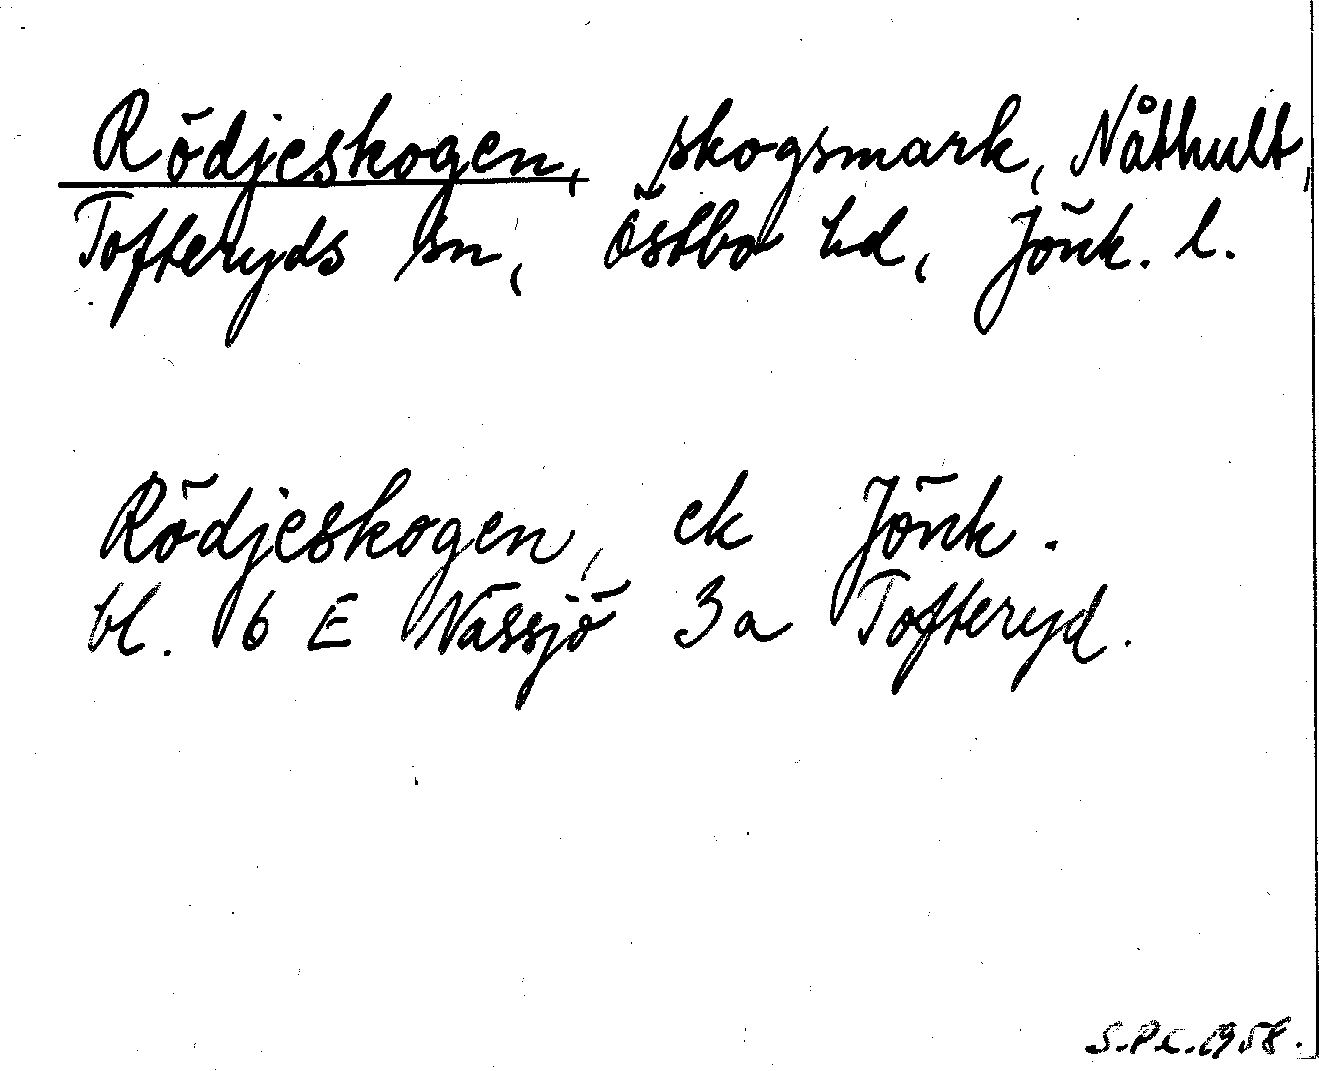 Rödjeskogen, skogsmark, Nåthult,
Tofteryds sn, Östbo hd, Jönk. l.
Rödjeskogen, ek Jönk.
bl. 6 E Nässjö 3a Tofteryd.
S.Pl.1958.